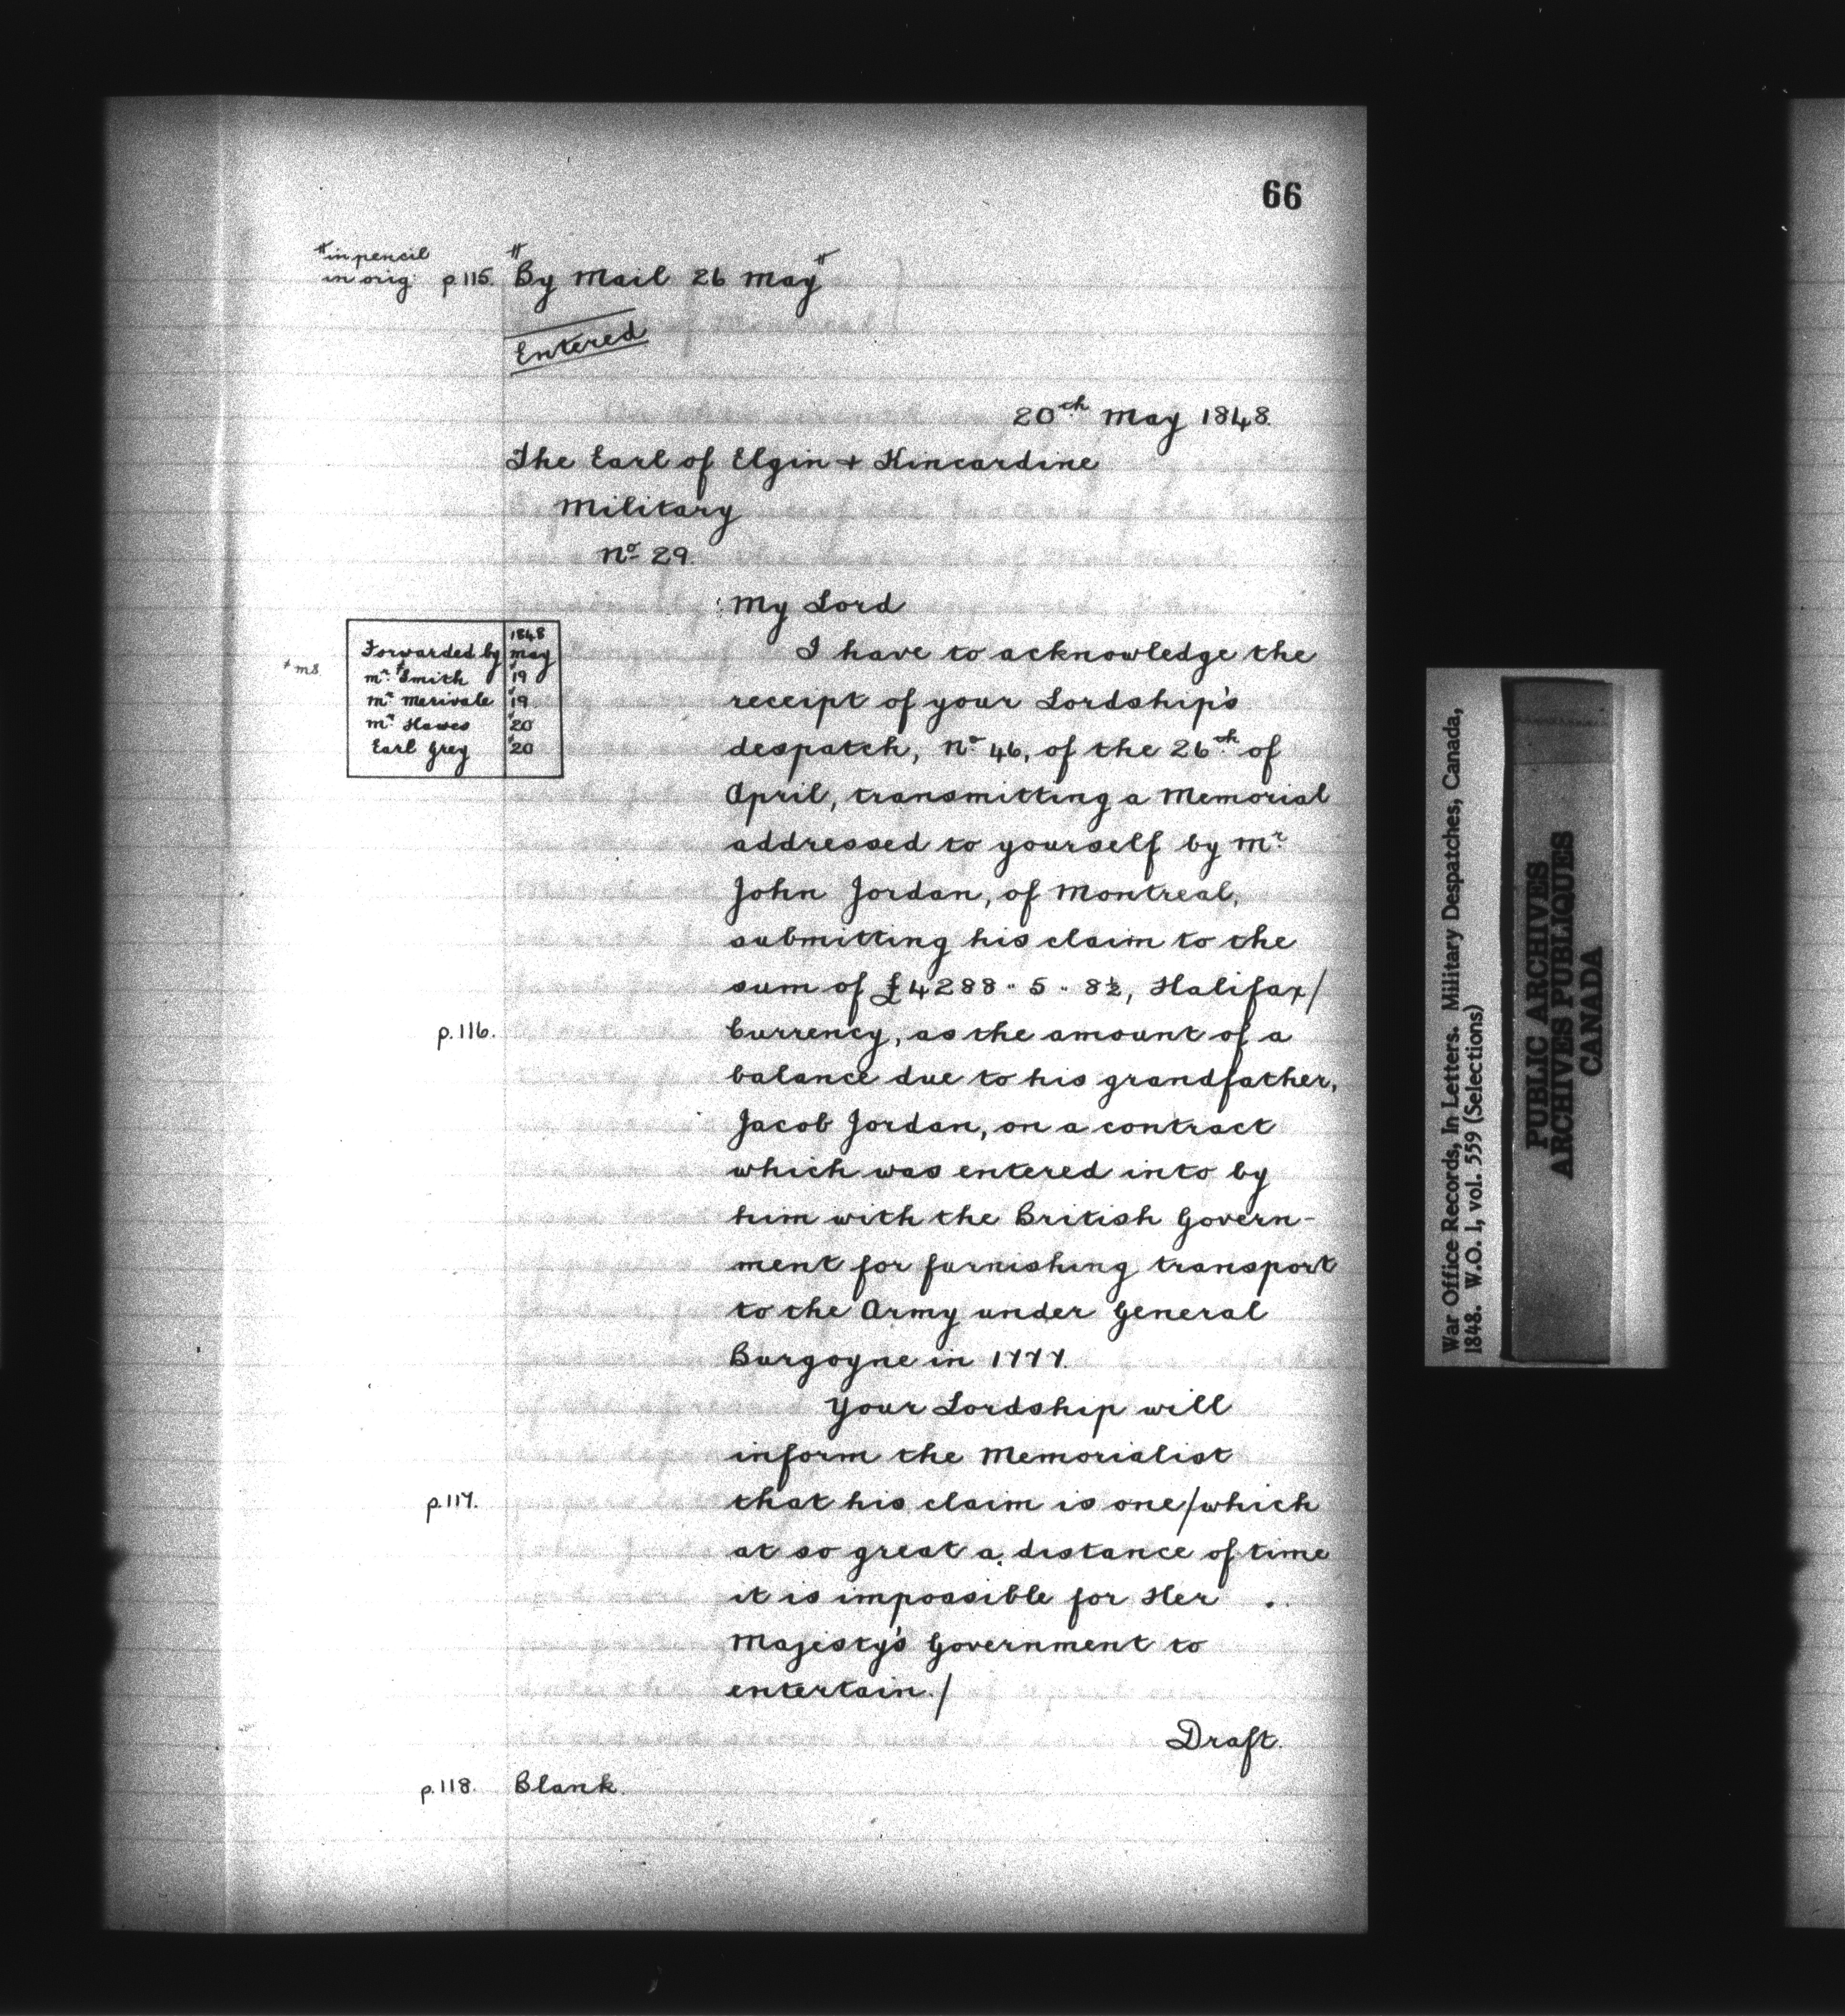 66
# in pencil
in orig. p115. # By Mail 26 May #
Entered
20th May 1848.
The Earl of Elgin + Kincardine
Military
No 29.
My Lord
1848
Forwarded by May
# ms.
Mr # Smith # 19
Mr Merivale # 19
Mr Hawes # 20
Earl Grey # 20
I have to acknowledge the
receipt of your Lordship's
despatch, No 46, of the 26th of
April, transmitting a Memorial
addressed to yourself by Mr
John Jordan, of Montreal,
submitting his claim to the
sum of £4288 " 5 " 8½, Halifax/
p.116. Currency, as the amount of a
balance due to his grandfather,
Jacob Jordan, on a contract
which was entered into by
him with the British Govern-
ment for furnishing transport
to the Army under General
Burgoyne in 1777.
Your Lordship will
inform the Memorialist
p.117. that his claim is one/which
at so great a distance of time
it is impossible for Her
Majesty's Government to
entertain./
Draft.
p.118. Blank.
War Office Records, In Letters. Military Despatches, Canada,
1848. W.O. 1, vol. 559 (Selections)
PUBLIC ARCHIVES
ARCHIVES PUBLIQUES
CANADA